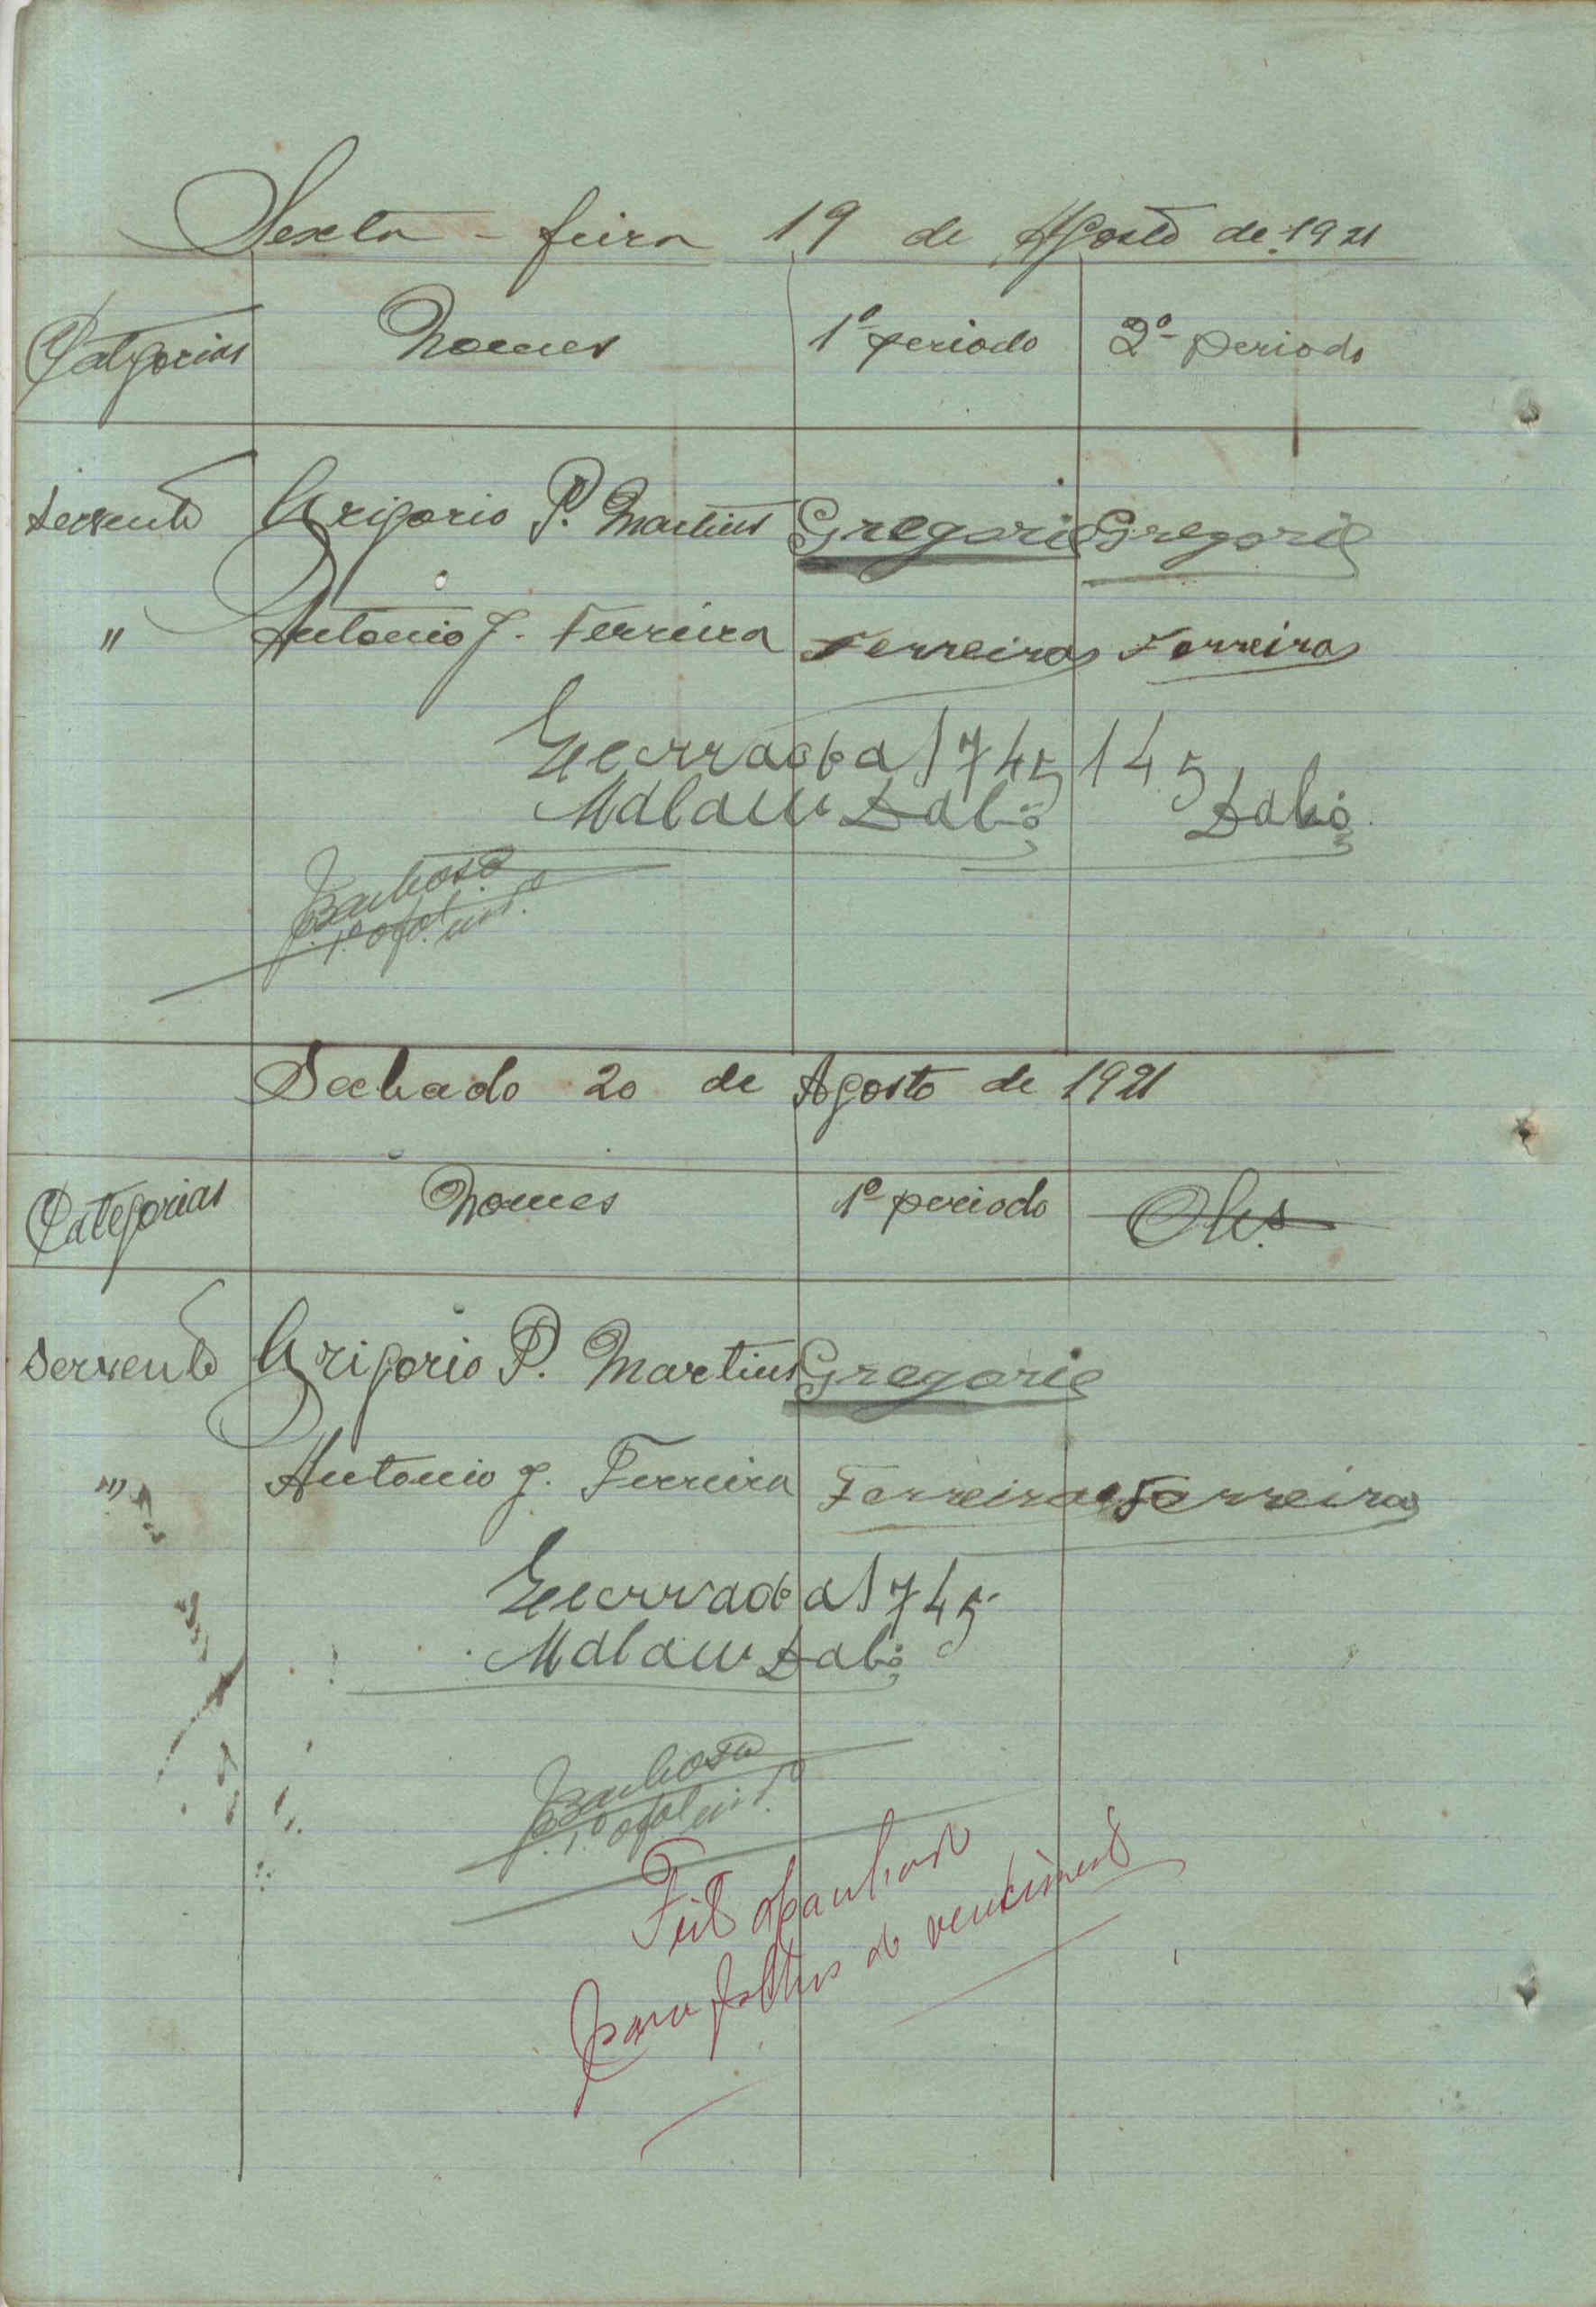 Sexta-feira 19 de Agosto de 1921
Categorias Nomes 1º periodo 2º periodo
Servente Grigorio P. Martins Gregorio Gregorio
" Antonio J. Ferreira Ferreira Ferreira
Encerrado a 1 7 45 1 45
Malam Dabó Dabó
Barbosa
1º ofal int.º
Sabado 20 de Agosto de 1921
Categorias Nomes 1º periodo Obs
Servente Grigorio P. Martins Gregorio
" Antonio J. Ferreira Ferreira Ferreira
Encerrado a 1 7 45
Malam Dabó
Barbosa
1º ofal int.º
Feito apanhado
para folhas de vencimento